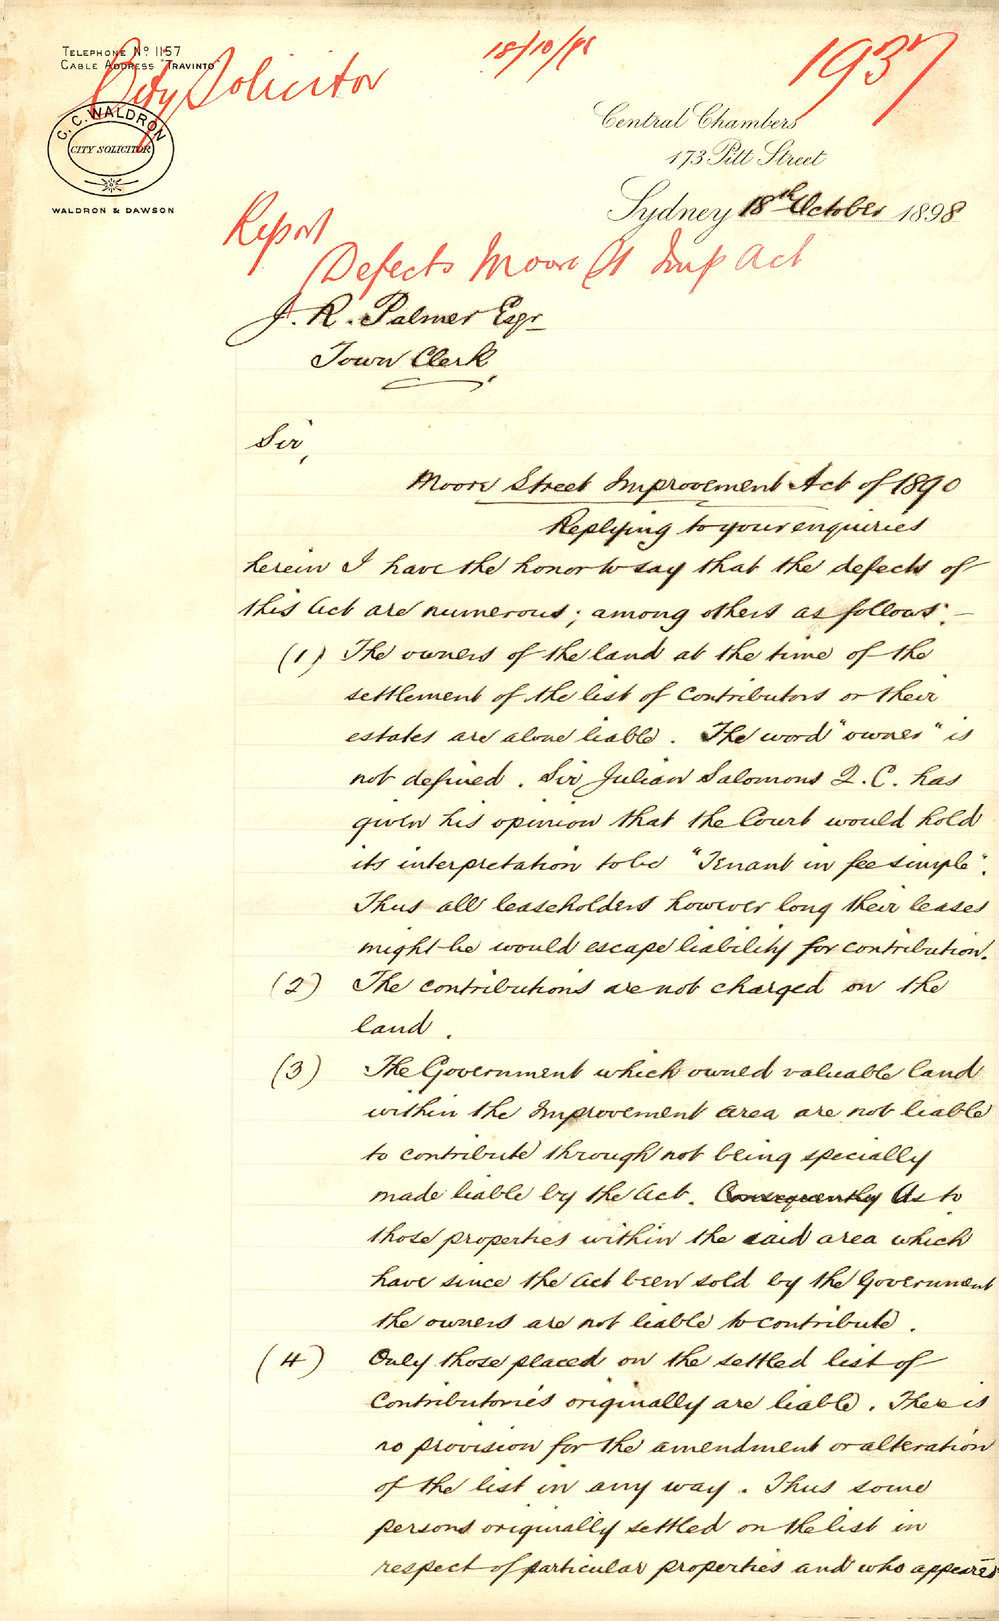 TELEPHONE No 1157
CABLE ADDRESS "TRAVINTO"
City Solicitor
18/10/98
1937
C. C. WALDRON
CITY SOLICITOR
WALDRON & DAWSON
Central Chambers
173 Pitt Street
Sydney 18th October 1898
Report
Defects Moore St Imp Act
J. R. Palmer Esqr
Town Clerk,
Sir,
Moore Street Improvement Act of 1890
Replying to your enquiries
herein I have the honor to say that the defects of
this Act are numerous; among others as follows:-
(1) The owners of the land at the time of the
settlement of the list of contributors or their
estates are alone liable. The word "owner" is
not defined. Sir Julian Salomons Q.C. has
given his opinion that the Court would hold
its interpretation to be "Tenant in fee simple".
Thus all leaseholders however long their leases
might be would escape liability for contribution.
(2) The contributions are not charged on the
land.
(3) The Government which owned valuable land
within the Improvement area are not liable
to contribute through not being specially
made liable by the Act. Consequently As to
those properties within the said area which
have since the Act been sold by the Government
the owners are not liable to contribute.
(4) Only those placed on the settled list of
Contributories originally are liable. There is
no provision for the amendment or alteration
of the list in any way. Thus some
persons originally settled on the list in
respect of particular properties and who appeared